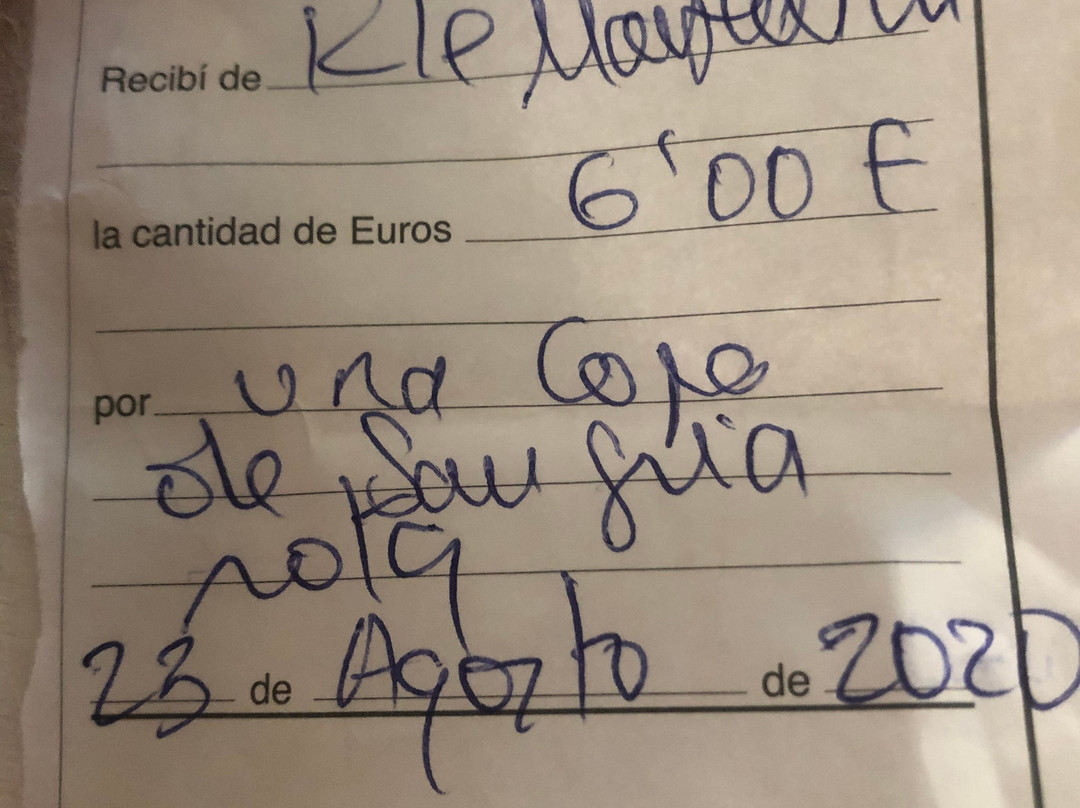 Recibí de
la cantidad de Euros 6'00 E
por una Copa
de Sangria
rota
23 de Agosto de 2020